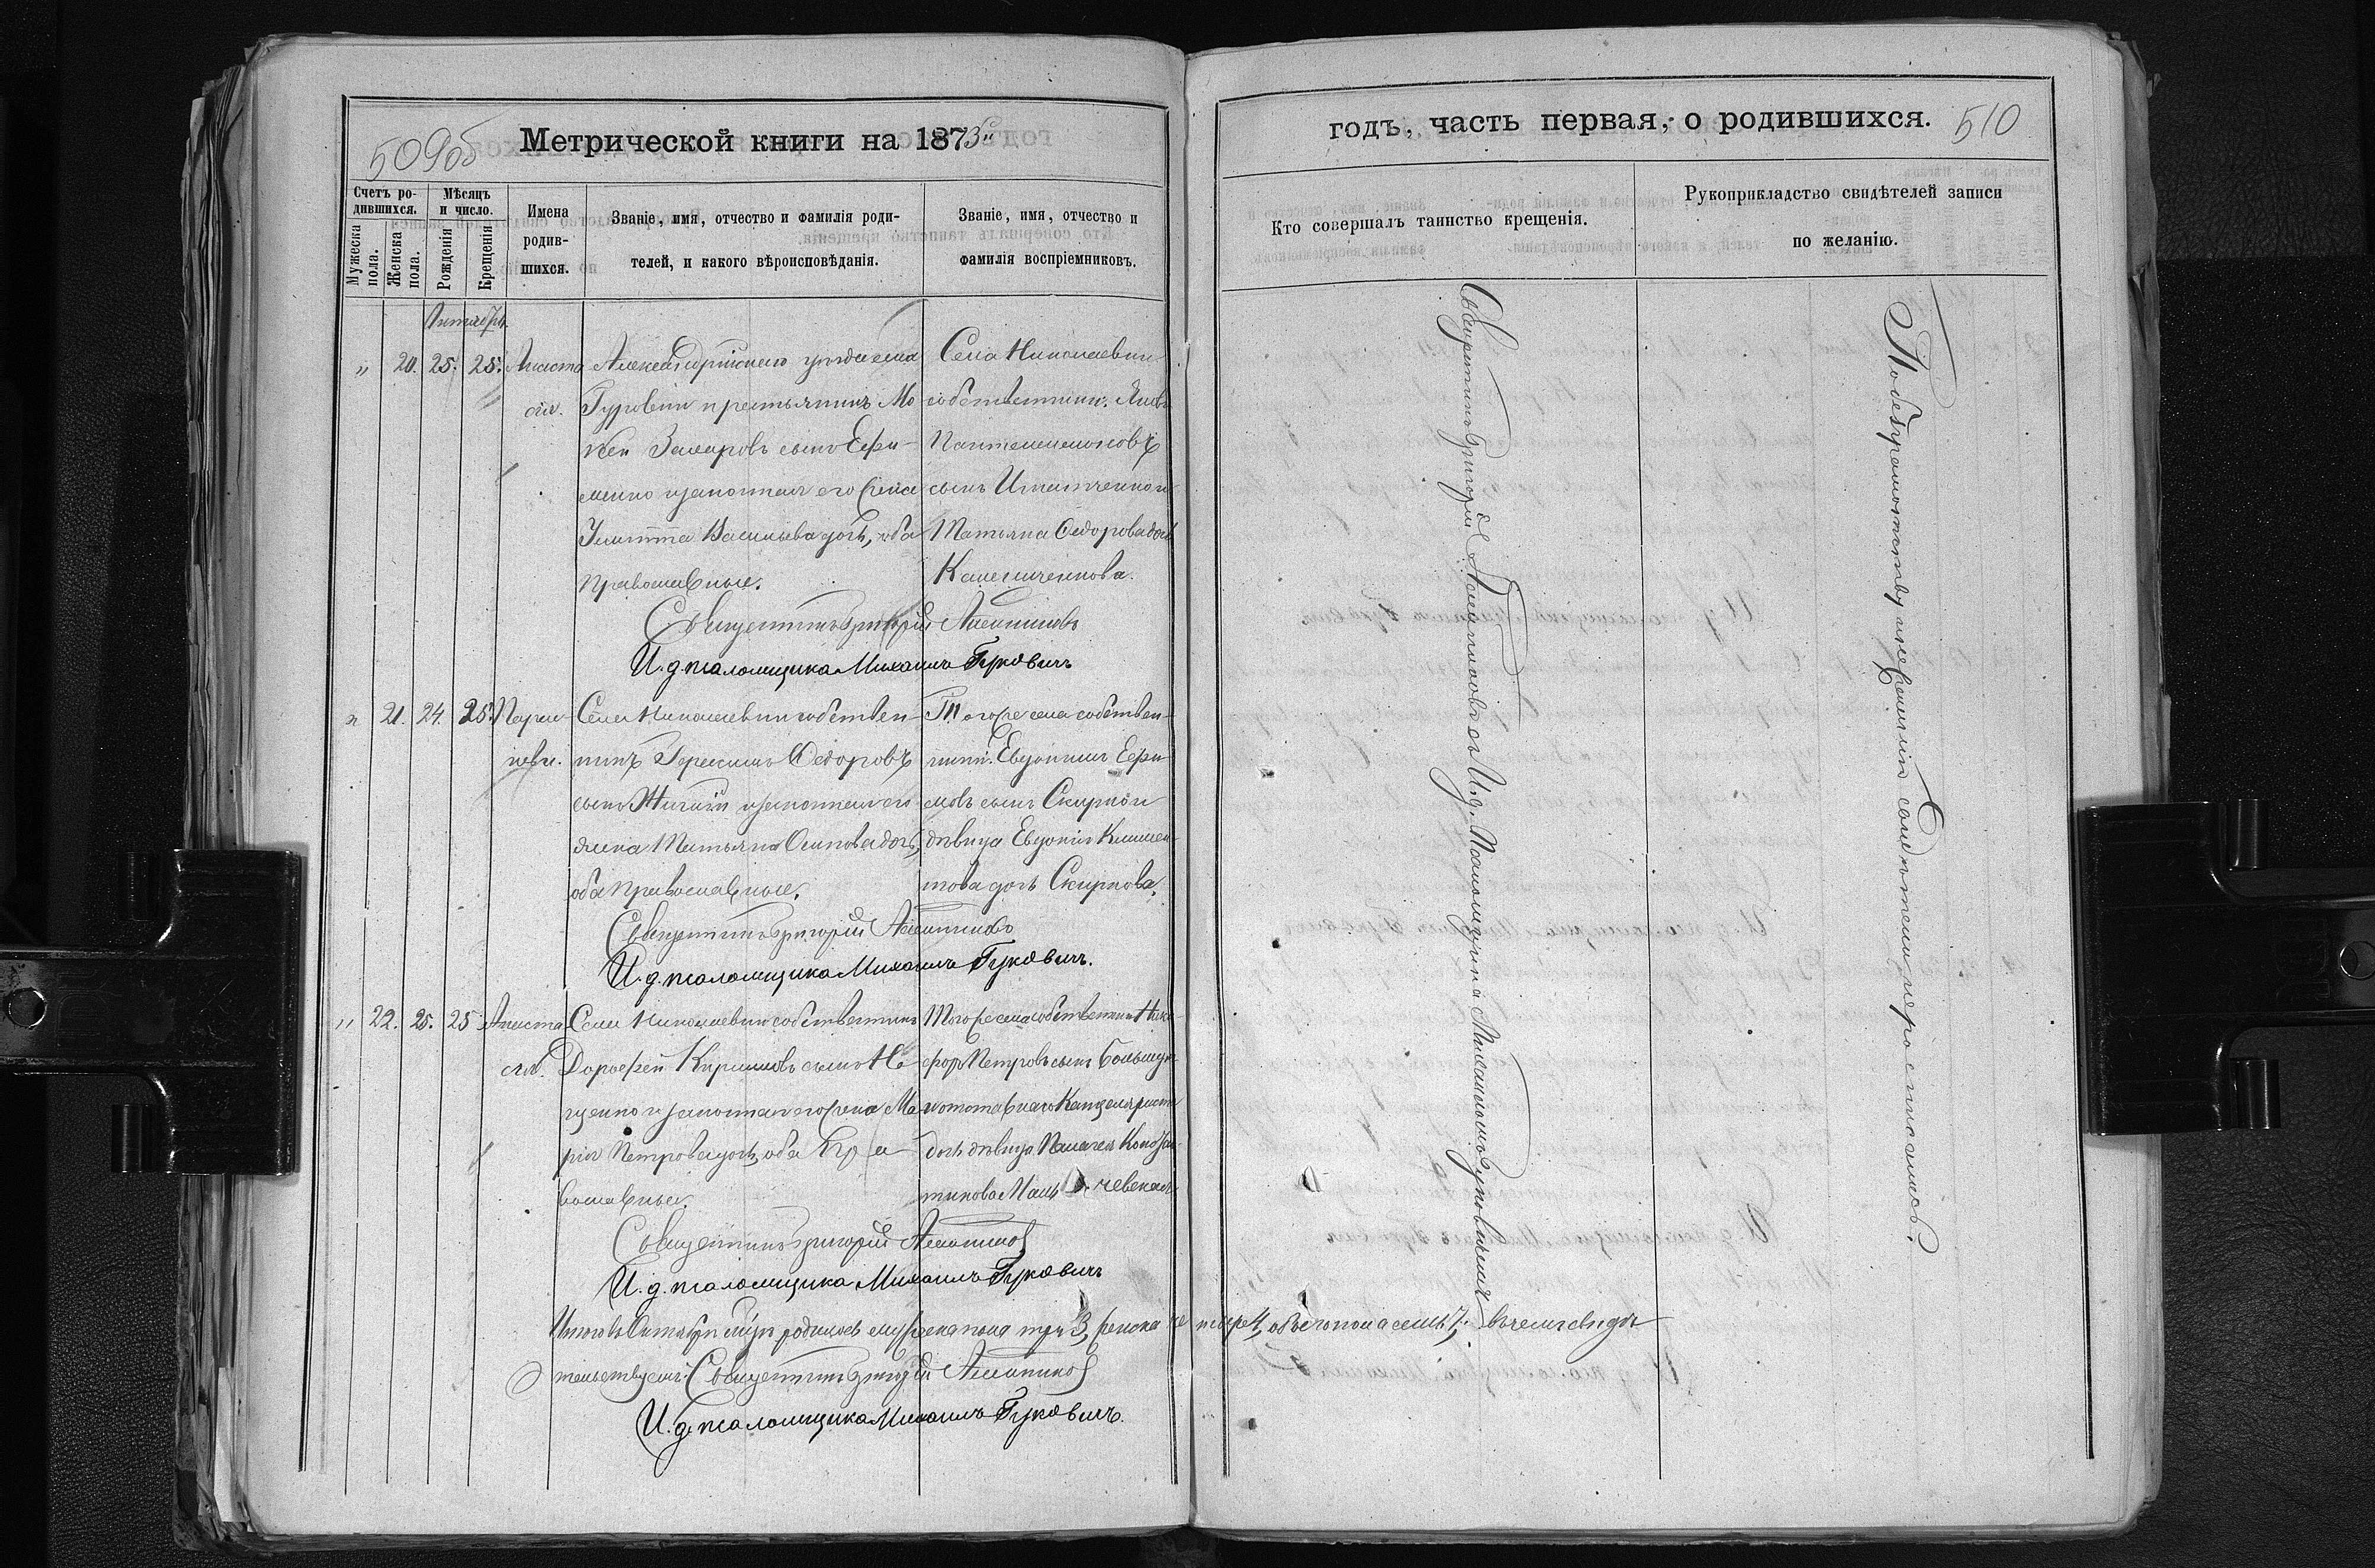 509об
Метрической книги на 1873й
Счетъ ро-
дившихся.
Мужеска
пола.
Женска
пола.
Мѣсяцъ
и число.
Рожденія
Крещенія
Имена
родив-
шихся.
Званіе, имя, отчество и фамилія роди-
телей, и какого вѣроисповѣданія.
Званіе, имя, отчество и
фамилія воспріемниковъ.
Октябрь.
" 20. 25. 25. Анаста
сія.
Александрійскаго уѣзда села
Гуровки крестьянинъ Мо
кей Захаровъ сынъ Ефи-
менко и законная его жена
Улитта Васильева дочь, оба
православные.
Села Николаевки
собственник. Яковъ
Пантелеимоновъ
сынъ Игнатченко и
Татьяна Ѳедорова дочь
Священникъ Григорій
И. д. псаломщика Михаилъ Гуковичъ
" 21. 24. 25. Параске-
Села Николаевки собствен-
никъ Герасимъ Ѳедоровъ
сынъ и законная его
жена Татьяна Осипова дочь,
оба православные.
Того же села собствен-
никъ. Евдокимъ Ефи-
мовъ сынъ Скирко и
дѣвица Евдокія Климен-
това дочь Скиркова.
Священникъ Григорій
И. д. псаломщика Михаилъ Гуковичъ.
" 22. 25. 25 Анаста
сія.
Села Николаевки собственникъ
Дорофей Кирилловъ сынъ Не-
и законная его жена Ма
рія Петрова дочь, оба Пра-
вославные.
Того же села собственникъ Ники-
форъ Петровъ сынъ
Канцеляриста
дочь дѣвица Пелагея
Священникъ Григорій
И. д. псаломщика Михаилъ Гуковичъ
Итого въ Октябрѣ м-цѣ родилось мужеска пола три 3, женска че тыре 4, обоего пола семь 7; въ чемъ свидѣ
тельствуемъ: Священникъ Григорій
И. д. псаломщика Михаилъ Гуковичъ.
годъ, часть первая, о родившихся.
510
Кто совершалъ таинство крещенія.
Рукоприкладство свидѣтелей записи
по желанію.
Священникъ Григорій съ И. д. Псаломщика Михаиломъ Гуковичемъ
По безграмотству и не желанію свидѣтели не росписались.